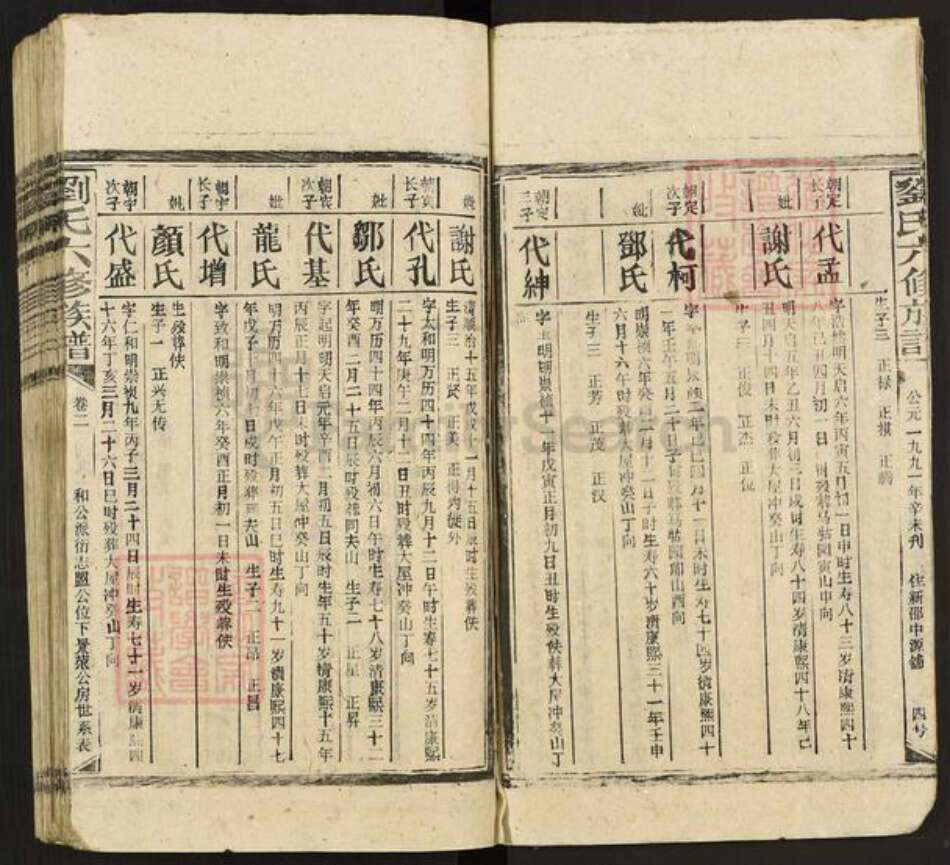 劉氏六修族譜
公元一九九一年辛未刊
住新邵中源錦
四
生子三 正禄 正祺 正鹇
朝定长子
代孟
字浩然明天启六年丙寅五月初一日申时生寿八十三岁清康熙四十
八年己丑四月初一日 时殁葬马牯园寅山申向
妣
謝氏
明天启五年乙丑六月初二日戌时生寿八十四岁清康熙四十八年己
丑四月十四日未时殁葬大屋冲癸山丁向
生子三 正俊 正杰 正位
朝定次子
代柯
二年己巳四月十一日未时生寿七十四岁清康熙四十
一年壬午五月二十日子时殁葬马牯园卯山酉向
妣
鄧氏
明崇祯六年癸酉二月十一日子时生寿六十岁清康熙三十一年壬申
六月十六午时殁葬大屋冲癸山丁向
生子三 正芳 正茂 正汉
朝定三子
代紳
字玉明明崇祯十一年戊寅正月初九日丑时生殁佚葬大屋冲癸山丁
謝氏
清顺治十五年戊戌十一月十五日辰时生殁葬佚
生子三 正贤 正美 正得内徙外
朝宾长子
代孔
字太和明万历四十四年丙辰九月十二日午时生春七十五岁清康熙
二十九年庚午二月十二日丑时殁葬大屋冲癸山丁向
妣
鄒氏
明万历四十四年丙辰六月初六日午时生寿七十八岁清康熙三十二
年癸酉二月二十五日辰时殁葬同夫山 生子二 正星 正昇
朝宾次子
代基
字起明明天启元年辛酉二月初五日辰时生年五十岁清康熙十五年
丙辰正月十七日未时殁葬大屋冲癸山丁向
妣
龍氏
明万历四十六年戊午正月初五日巳时生寿九十一岁清康熙四十七
年戊子二月初七日戌时殁葬 夫山 生子二 正昂 正昌
朝宇长子
代增
字致和明崇祯六年癸酉正月初一日未时生殁葬佚
妣
顔氏
生殁葬佚
生子一 正兴无传
朝宇次子
代盛
字仁和明崇祯九年丙子三月二十四日辰时生寿七十一岁清康熙四
十六年丁亥三月二十六日巳时殁葬大屋冲癸山丁向
劉氏六修族譜
卷二
和公派衍志盟公位下景葆公房世系表